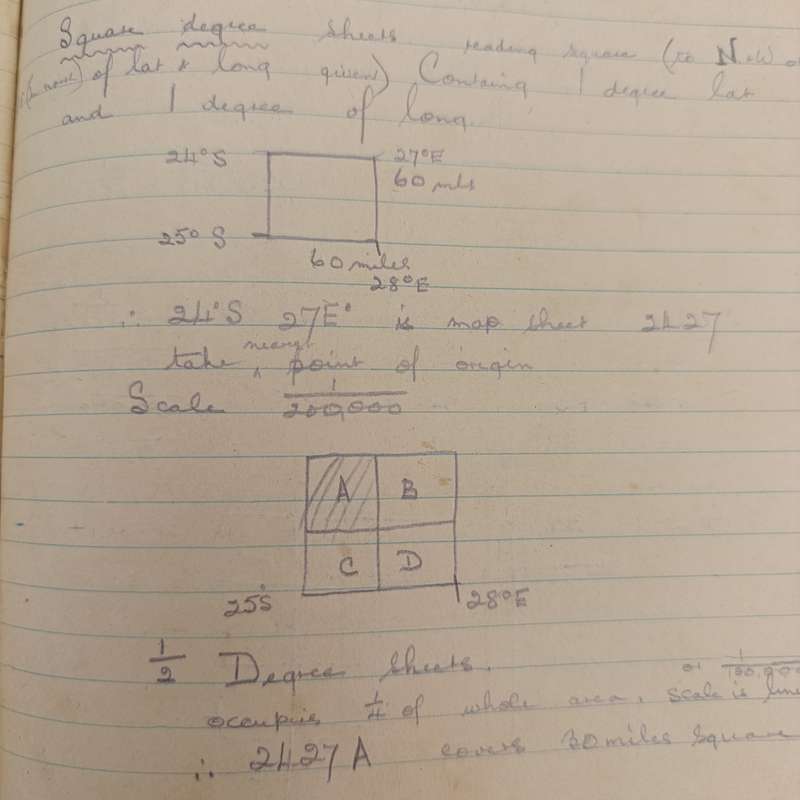 Square degree Sheets reading square (to N.W. o
of lat & long given) Containg 1 degree lat
and 1 degree of long
24°S 27°E
60 mls
25° S
60 miles
28°E
∴ 24°S 27E° is map sheet 2427
nearest
take ^ point of origin
Scale 1/200,000
A B
C D
25°S 28°E
1/2 Degree Sheets.
or 1/100,000
occupies 1/4 of whole area, scale is
∴ 2427A covers 30 miles square